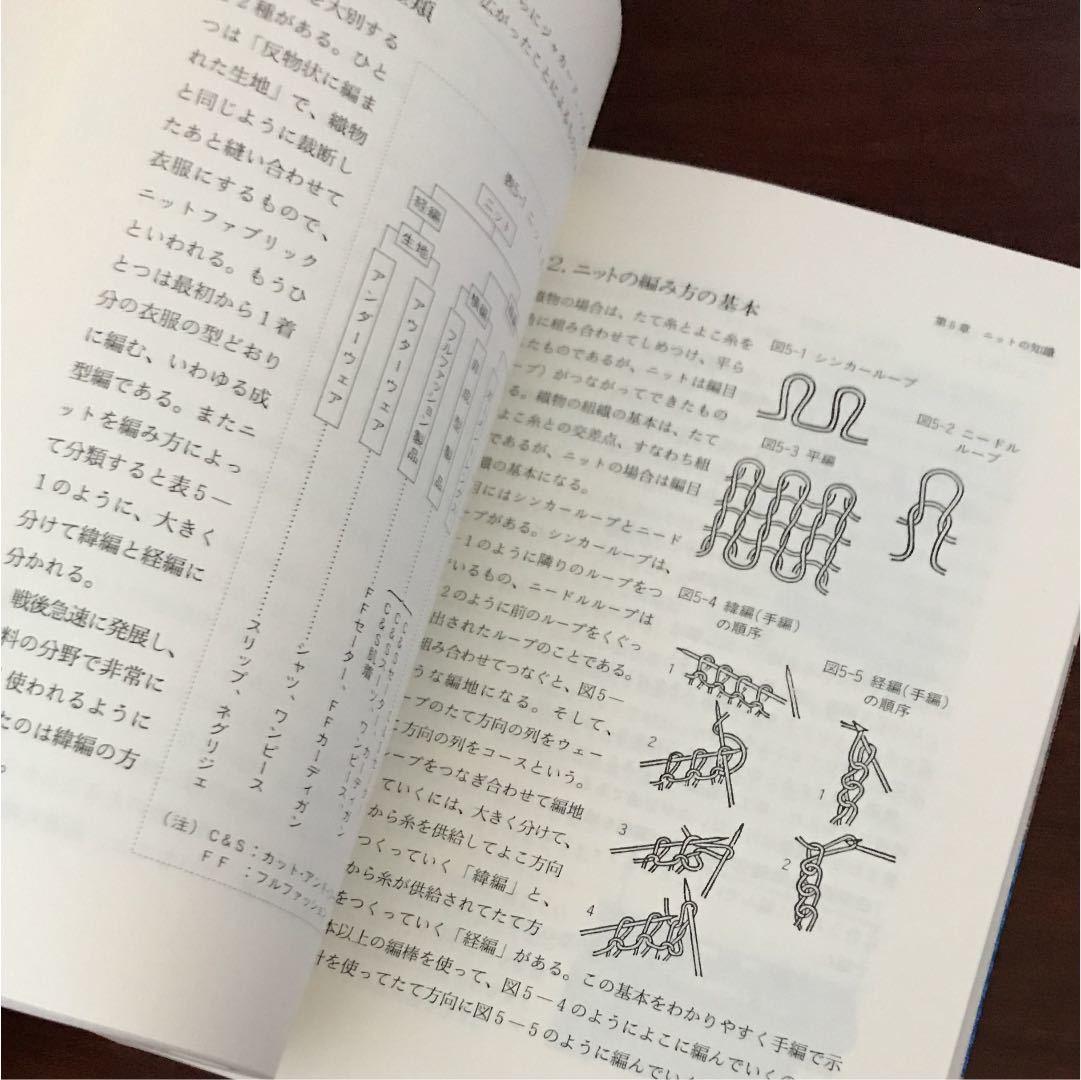 類
を大別する
2種がある。ひと
つは「反物状に編ま
れた生地」で、織物
と同じように裁断し
たあと縫い合わせて
衣服にするもので、
ニットファブリック
といわれる。もうひ
とつは最初から1着
分の衣服の型どおり
に編む、いわゆる成
型編である。またニ
ットを編み方によっ
て分類すると表5—
1のように、大きく
分けて緯編と経編に
分かれる。
戦後急速に発展し、
料の分野で非常に
使われるように
たのは緯編の方
らにジャカード
広がったことによる
表5-1 ニット
ニット
経編
生地
緯編
アンダーウェア
アウターウェア
フルファッション製品
スリップ、ネグリジェ
シャツ、ワンピース
FFセーター、FFカーディガン
C&S肌着
(注) C&S:カット・アンド
FF :フルファッション
第5章 ニットの知識
2. ニットの編み方の基本
織物の場合は、たて糸とよこ糸を
に組み合わせてしめつけ、平ら
たものであるが、ニットは編目
プ)がつながってできたもの
る。織物の組織の基本は、たて
よこ糸との交差点、すなわち組
であるが、ニットの場合は編目
織の基本になる。
目にはシンカーループとニード
プがある。シンカーループは、
-1のように隣りのループをつ
いるもの、ニードルループは
2のように前のループをくぐっ
出されたループのことである。
組み合わせてつなぐと、図5—
うな編地になる。そして、
プのたて方向の列をウェー
こ方向の列をコースという。
ープをつなぎ合わせて編地
ていくには、大きく分けて、
から糸を供給してよこ方向
つくっていく「緯編」と、
から糸が供給されてたて方
をつくっていく「経編」がある。この基本をわかりやすく手編で示
本以上の編棒を使って、図5—4のようによこに編んでいくの
針を使ってたて方向に図5—5のように編んでいく
図5-1 シンカーループ
図5-2 ニードル
ループ
図5-3 平編
図5-4 緯編(手編)
の順序
1
2
3
4
図5-5 経編(手編)
の順序
1
2